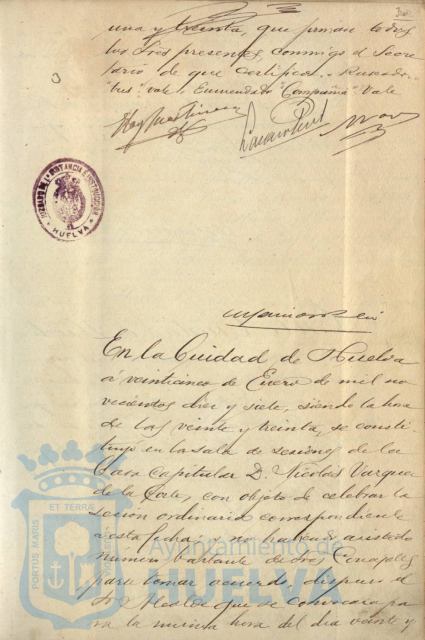 una y treinta, que firman todos
los Sres presentes, conmigo el Secre
tario de que certifico.
vale. Enmendado "Compañia" Vale
JUZGADO DE 1ª INSTANCIA E INSTRUCCION
HUELVA
En la Ciudad de Huelva
á veinticinco de Enero de mil no
vecientos diez y siete, siendo la hora
de las veinte y treinta, se consti
tuyó en la Sala de sesiones de la
Casa Capitular D. Nicolás Vazquez
de la Corte, con objeto de celebrar la
sesion ordinaria correspondiente
a esta fecha, y no habiendo asistido
numero bastante de Sres Concejales
para tomar acuerdo, dispuso el
Sr Alcalde que se convocara pa
ra la misma hora del dia veinte y
PORTUS MARIS ET TERRÆ
Ayuntamiento de
HUELVA